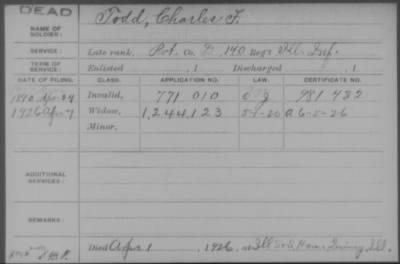 DEAD
NAME OF SOLDIER: Todd, Charles F.
SERVICE: Late rank, Pvt. Co. D, 140 Reg't Ill. Inf.
TERM OF SERVICE: Enlisted , 1 Discharged , 1
DATE OF FILING. CLASS. APPLICATION NO. LAW. CERTIFICATE NO.
1890 Apr 24 Invalid, 771 010 981 782
1926 Apr 7 Widow, 1,244,123 5-1-20 A 6-5-26
Minor,
ADDITIONAL SERVICES:
REMARKS:
Died Apr 1 , 1926, at Ill S & S Home Quincy, Ill.